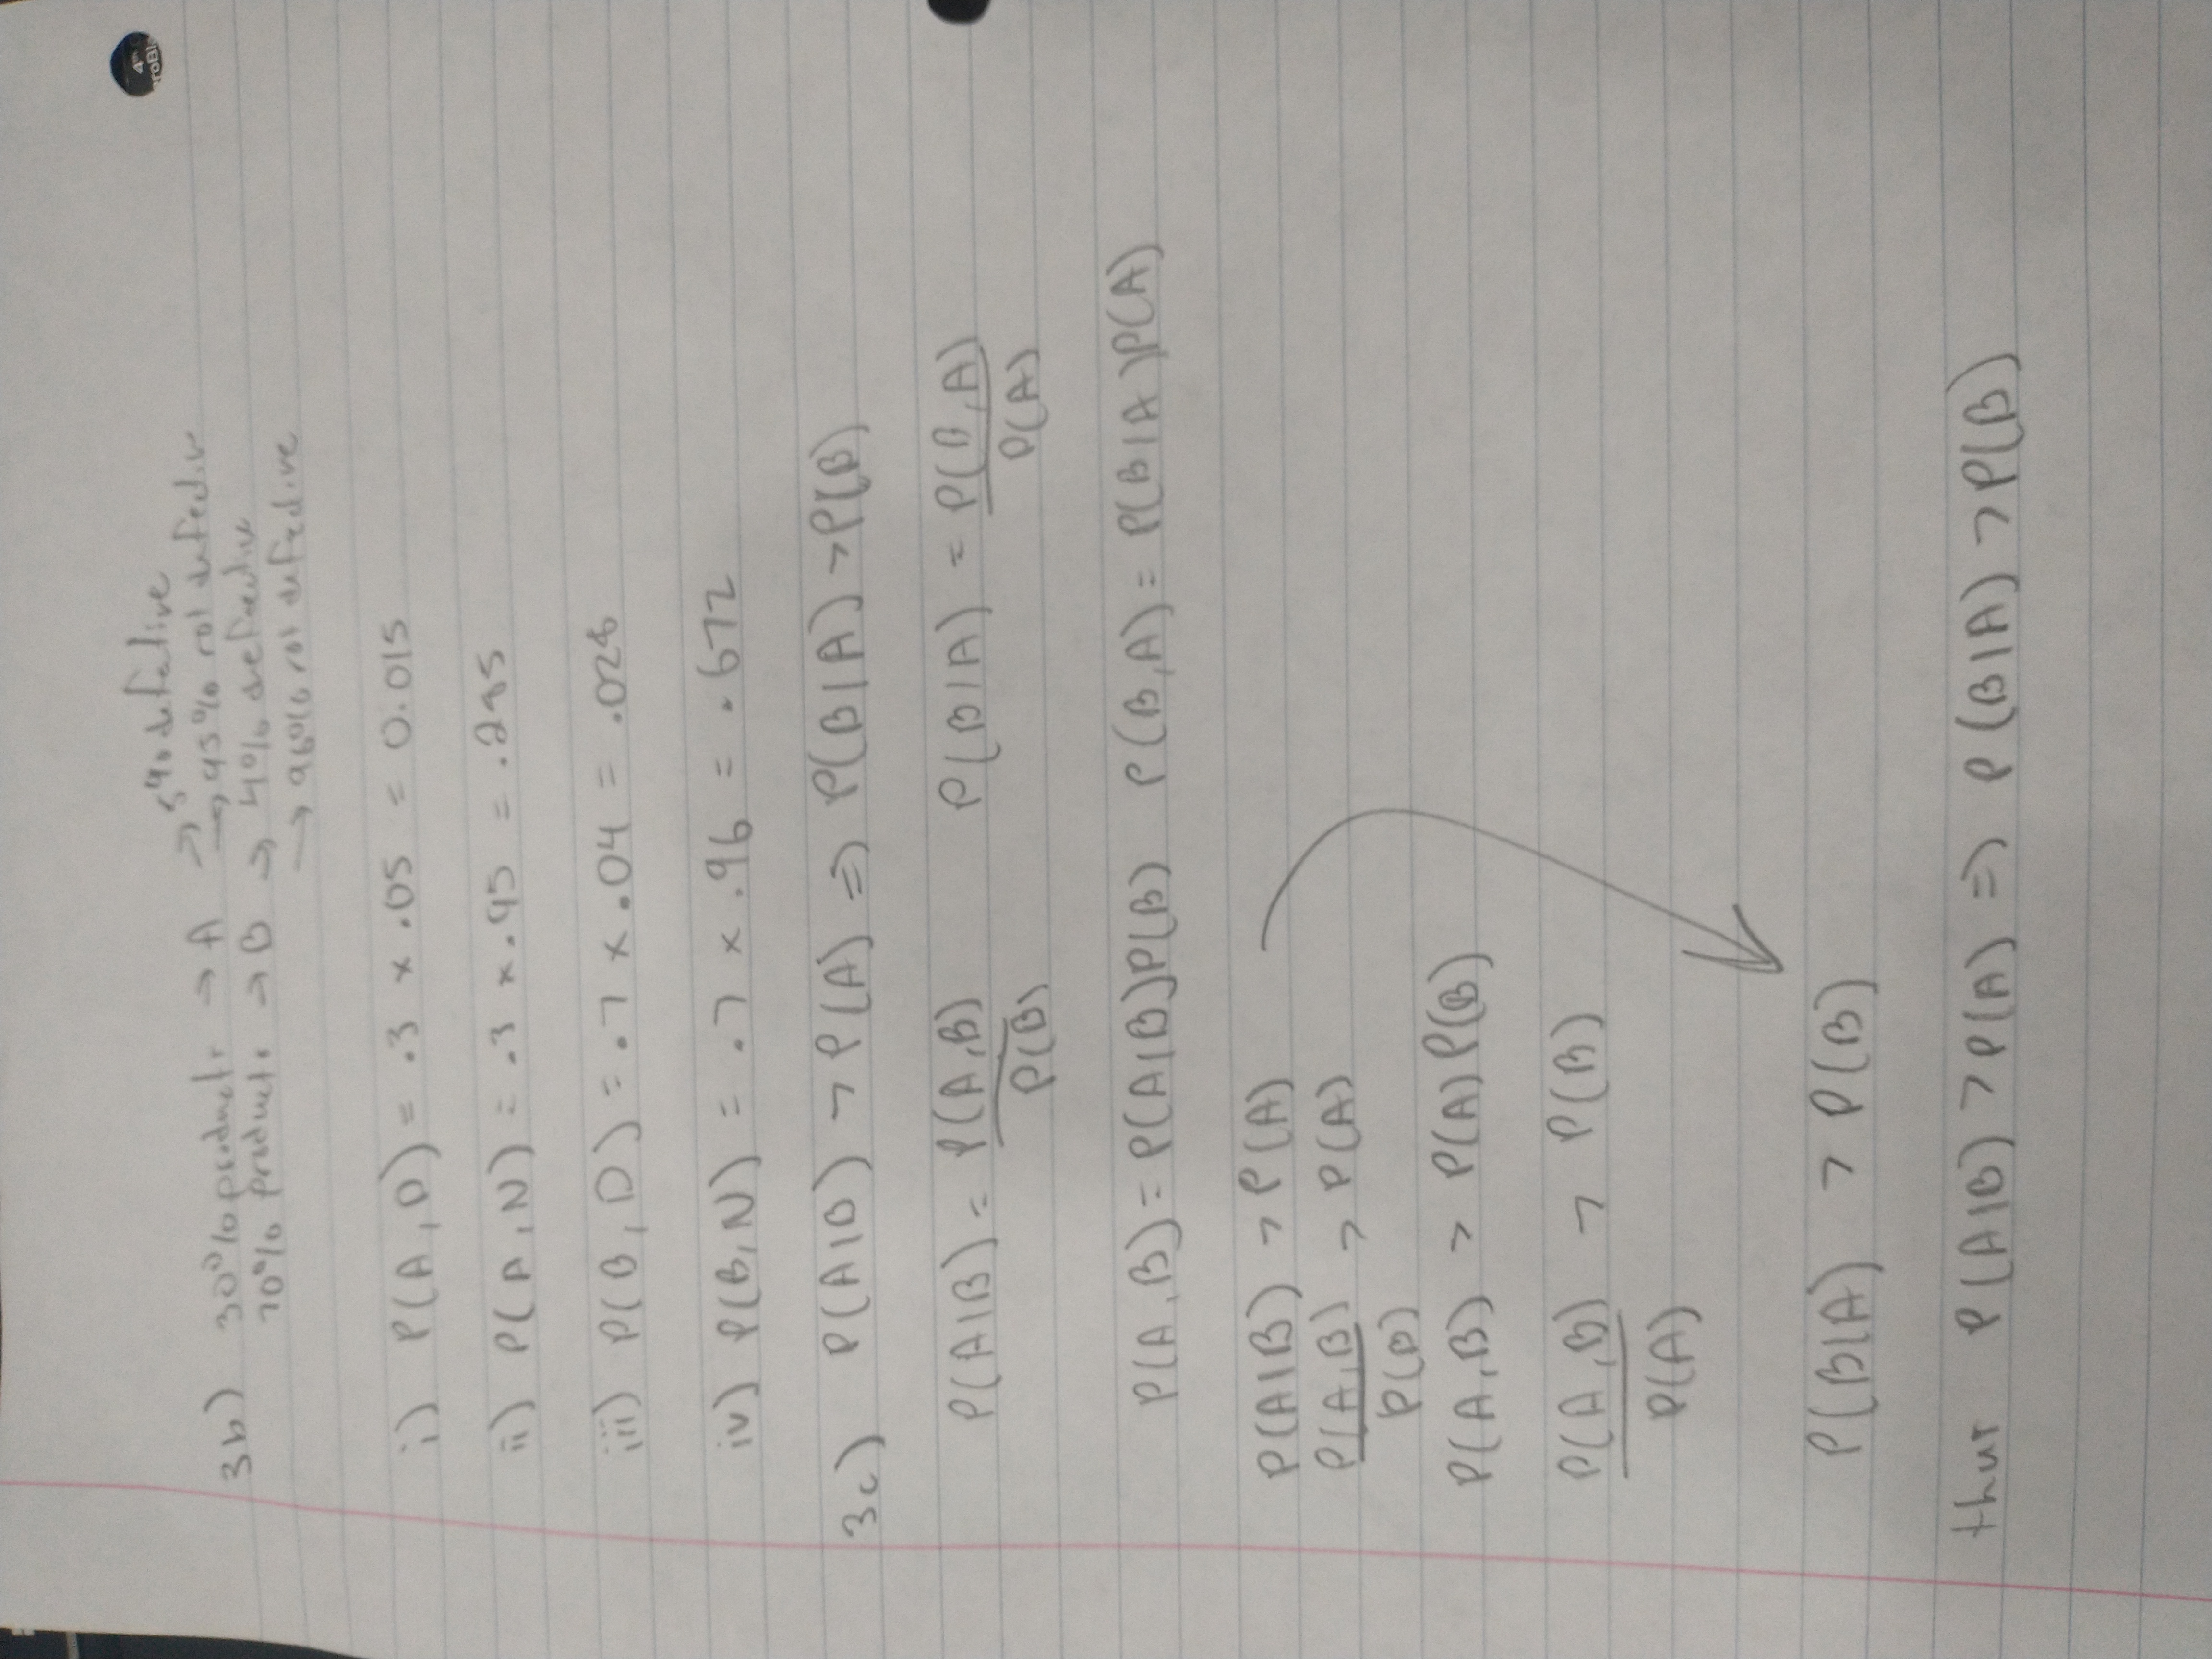 3b) 30% products → A → 5% defective
→ 95% not defective
70% products → B → 4% defective
→ 96% not defective
i) P(A,D) = .3 × .05 = 0.015
ii) P(A,N) = .3 × .95 = .285
iii) P(B,D) = .7 × .04 = .028
iv) P(B,N) = .7 × .96 = .672
3c) P(A|B) > P(A) => P(B|A) > P(B)
P(A|B) = P(A,B) / P(B) P(B|A) = P(B,A) / P(A)
P(A,B) = P(A|B)P(B) P(B,A) = P(B|A)P(A)
P(A|B) > P(A)
P(A,B) / P(B) > P(A)
P(A,B) > P(A)P(B)
P(A,B) / P(A) > P(B)
P(B|A) > P(B)
thus P(A|B) > P(A) => P(B|A) > P(B)